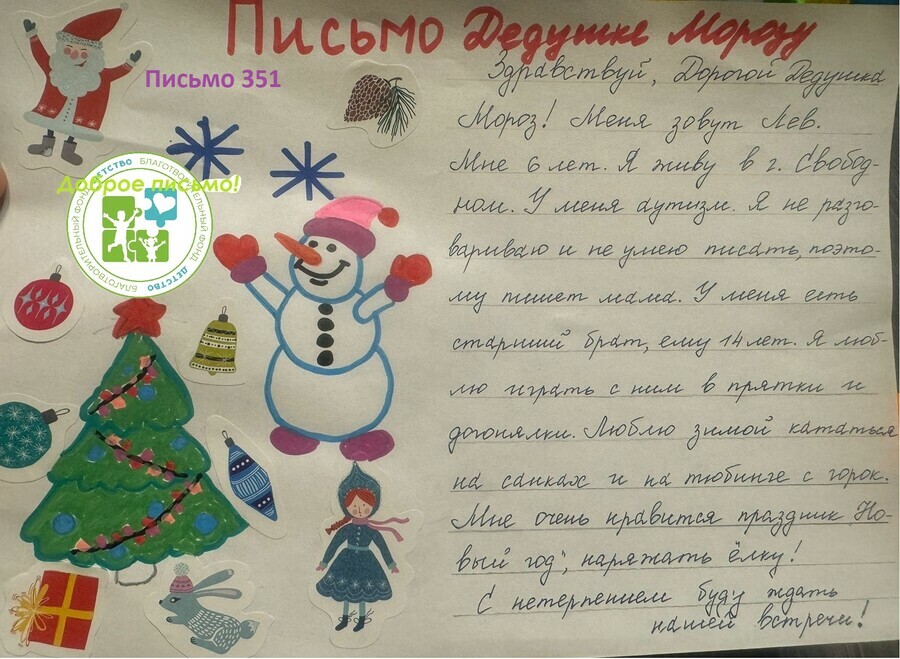 Письмо Дедушке Морозу
Письмо 351
Доброе письмо!
БЛАГОТВОРИТЕЛЬНЫЙ ФОНД ДЕТСТВО БЛАГОТВОРИТЕЛЬНЫЙ ФОНД ДЕТСТВО
Здравствуй, Дорогой Дедушка
Мороз! Меня зовут Лев.
Мне 6 лет. Я живу в г. Свобод-
ном. У меня аутизм. Я не разго-
вариваю и не умею писать, поэто-
му пишет мама. У меня есть
старший брат, ему 14 лет. Я люб-
лю играть с ним в прятки и
догонялки. Люблю зимой кататься
на санках и на тюбинге с горок.
Мне очень нравится праздник "Но-
вый год", наряжать ёлку!
С нетерпением буду ждать
нашей встречи!